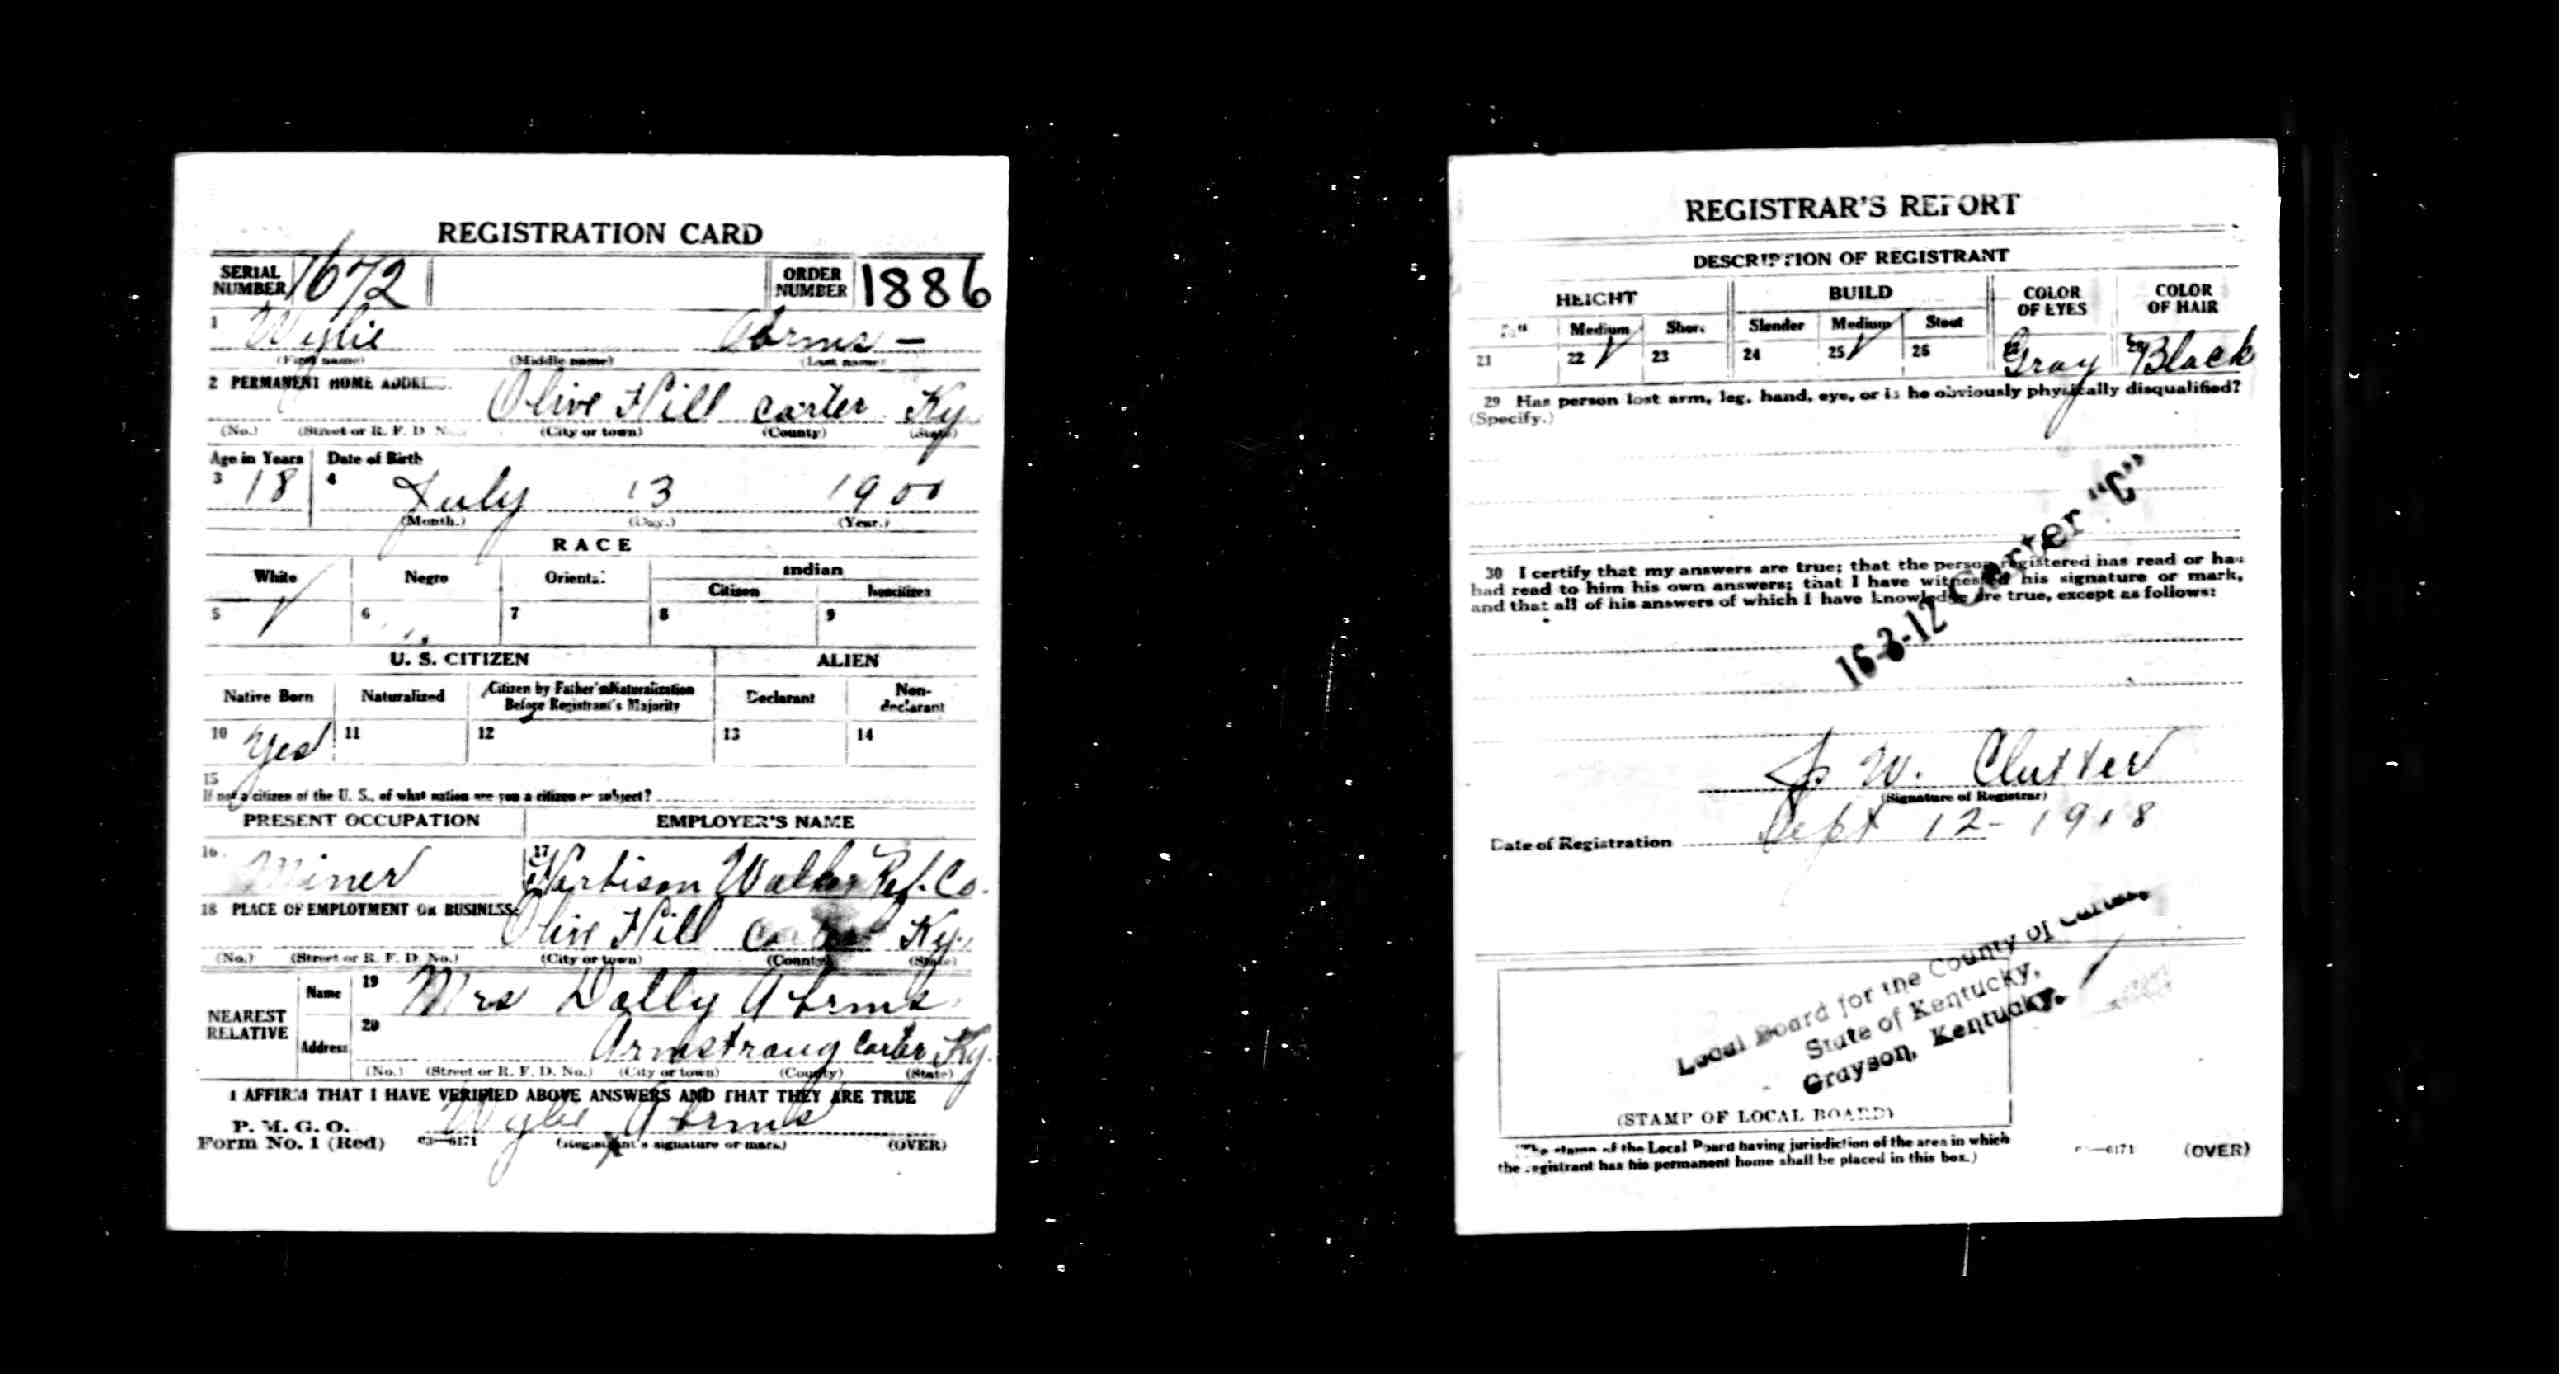 REGISTRATION CARD
SERIAL NUMBER 1672 ORDER NUMBER 1886
1 Wylie Abrms -
(First name) (Middle name) (Last name)
2 PERMANENT HOME ADDRESS: Olive Hill Carter Ky
(No.) (Street or R. F. D. No.) (City or town) (County) (State)
Age in Years Date of Birth
3 18 4 July 13 1900
(Month.) (Day.) (Year.)
RACE
White Negro Oriental Indian
Citizen Noncitizen
5 ✓ 6 7 8 9
U. S. CITIZEN ALIEN
Native Born Naturalized Citizen by Father's Naturalization Before Registrant's Majority Declarant Non-declarant
10 Yes 11 12 13 14
15
If not a citizen of the U. S., of what nation are you a citizen or subject?
PRESENT OCCUPATION EMPLOYER'S NAME
16 Miner 17 Harbison Walker Ref. Co.
18 PLACE OF EMPLOYMENT OR BUSINESS:
Olive Hill Carter Ky.
(No.) (Street or R. F. D. No.) (City or town) (County) (State)
NEAREST RELATIVE Name 19 Mrs Dolly Abrms
Address 20 Armstrong Carter Ky.
(No.) (Street or R. F. D. No.) (City or town) (County) (State)
I AFFIRM THAT I HAVE VERIFIED ABOVE ANSWERS AND THAT THEY ARE TRUE
P. M. G. O.
Form No. 1 (Red) 03—6171 Wylie Abrms
(Registrant's signature or mark) (OVER)
REGISTRAR'S REPORT
DESCRIPTION OF REGISTRANT
HEIGHT BUILD COLOR OF EYES COLOR OF HAIR
Tall Medium Short Slender Medium Stout
21 22 ✓ 23 24 25 ✓ 26 27 Gray 28 Black
29 Has person lost arm, leg, hand, eye, or is he obviously physically disqualified?
(Specify.)
16-3-12 Carter "C"
30 I certify that my answers are true; that the person registered has read or has
had read to him his own answers; that I have witnessed his signature or mark,
and that all of his answers of which I have knowledge are true, except as follows:
W. Clutter
(Signature of Registrar)
Date of Registration Sept 12 - 1918
Local Board for the County of Carter,
State of Kentucky,
Grayson, Kentucky.
(STAMP OF LOCAL BOARD)
(The stamp of the Local Board having jurisdiction of the area in which
the registrant has his permanent home shall be placed in this box.)
03—6171 (OVER)